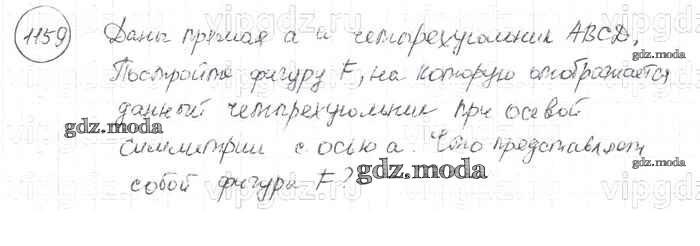 1159 Даны прямая a и четырехугольник ABCD.
Постройте фигуру F, на которую отображается
данный четырехугольник при осевой
gdz.moda
gdz.moda
симметрии с осью a. Что представляет
gdz.moda
собой фигура F?